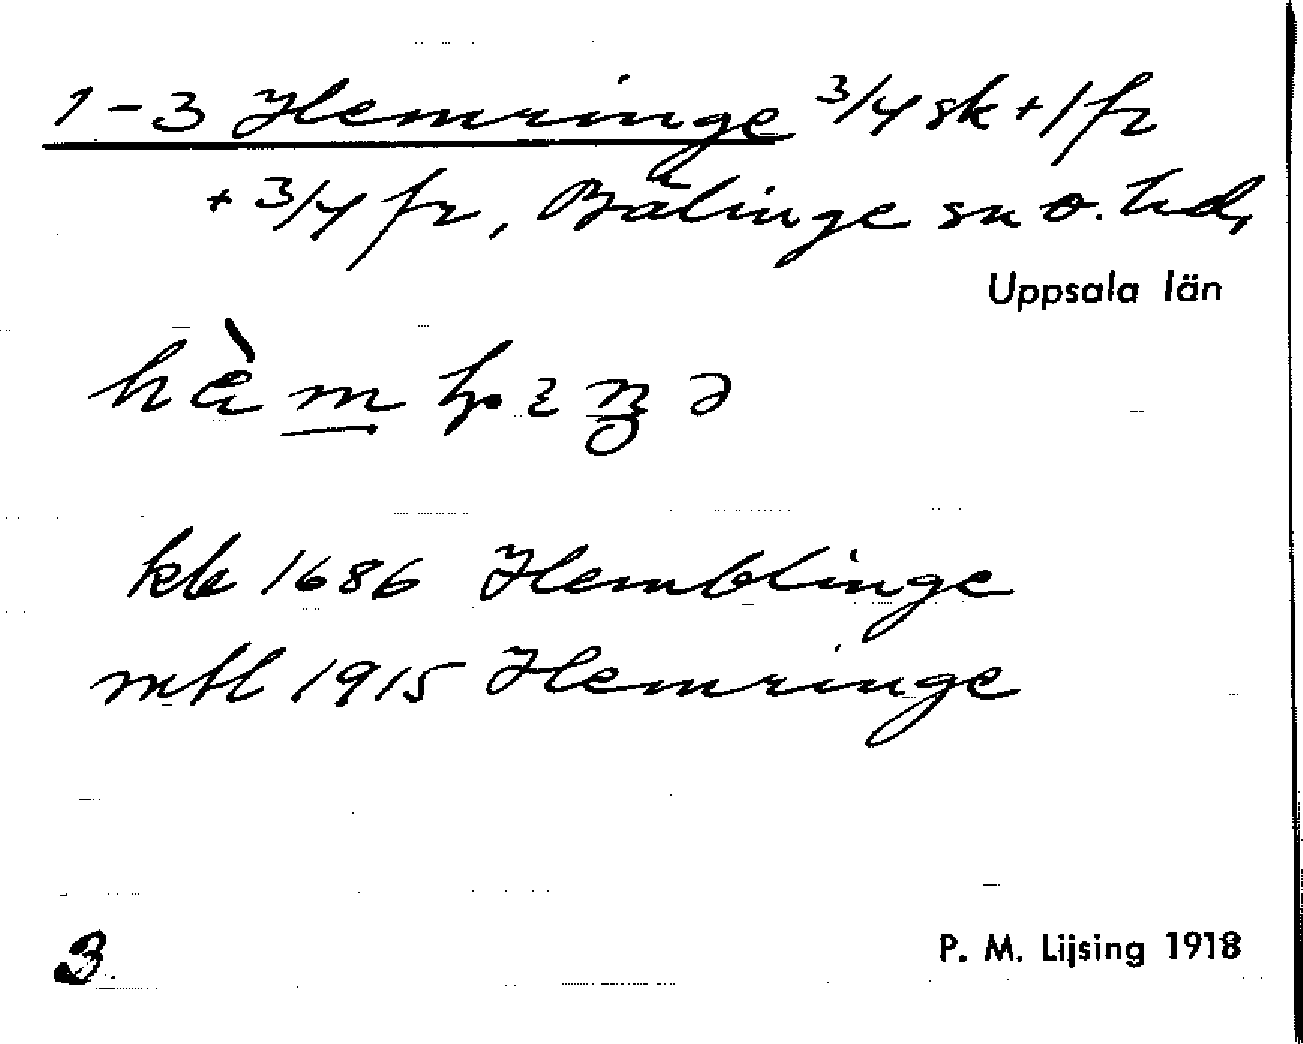 1-3 Hemringe 3/4 sk + 1 fr
+ 3/4 fr, Bälinge sn o. hd,
Uppsala län
kb 1686 Hemblinge
mtl 1915 Hemringe
3
P. M. Lijsing 1918